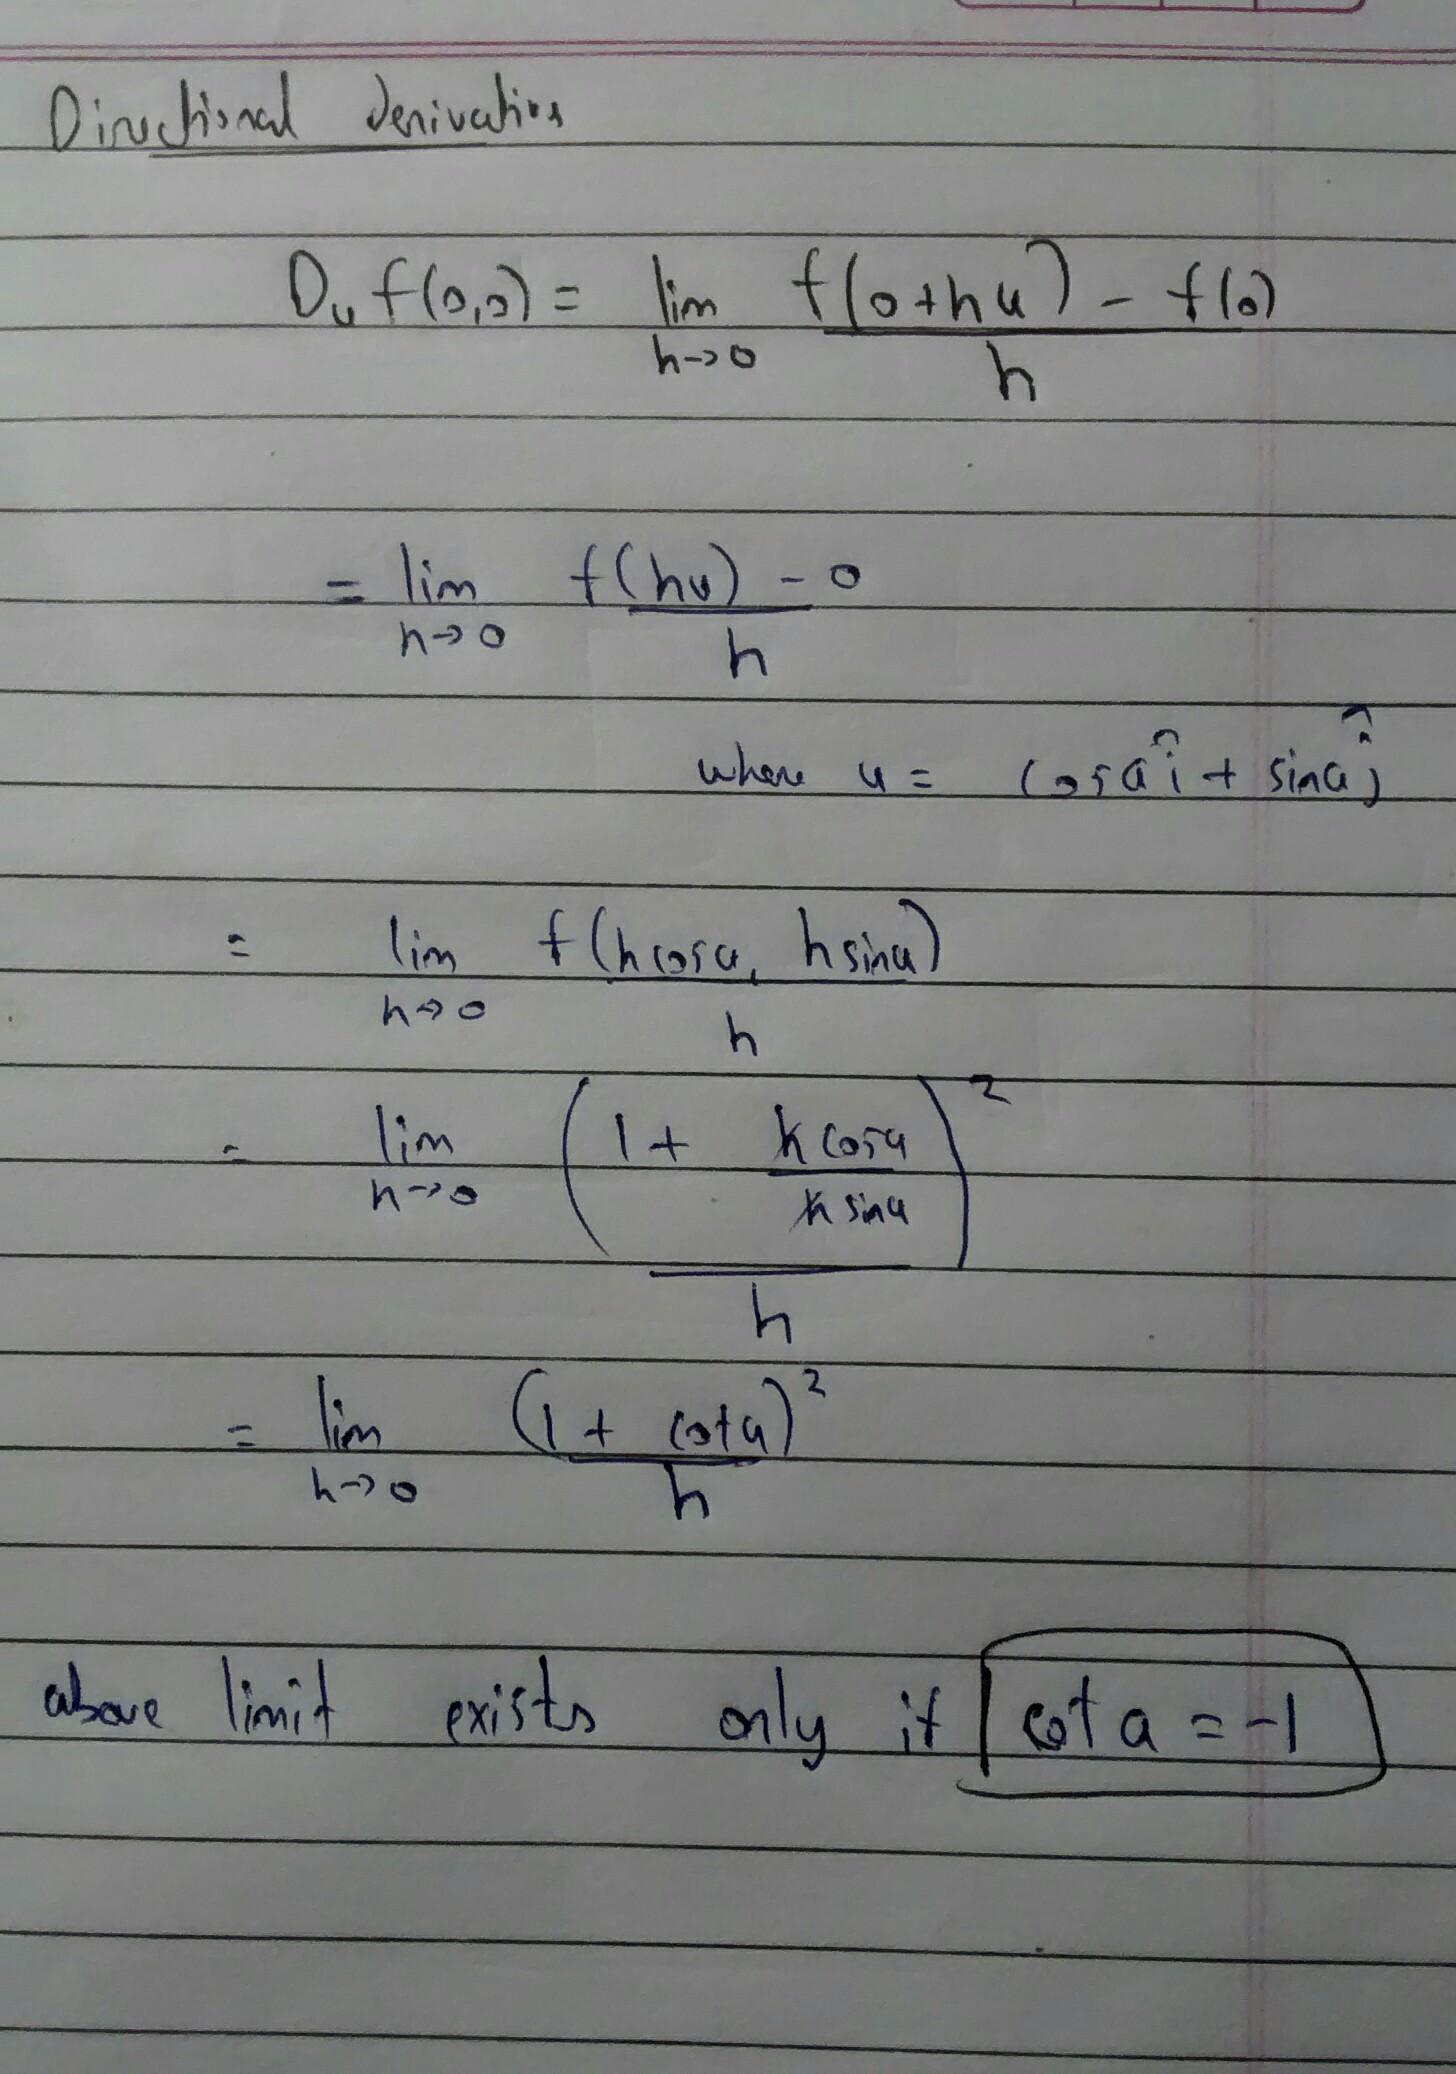 Directional derivatives
D_u f(0,0) = lim_{h→0} (f(0+hu) - f(0)) / h
= lim_{h→0} (f(hu) - 0) / h
where u = cos a î + sin a ĵ
= lim_{h→0} f(h cos a, h sin a) / h
= lim_{h→0} (1 + (h cos a)/(h sin a))^2 / h
= lim_{h→0} (1 + cot a)^2 / h
above limit exists only if cot a = -1